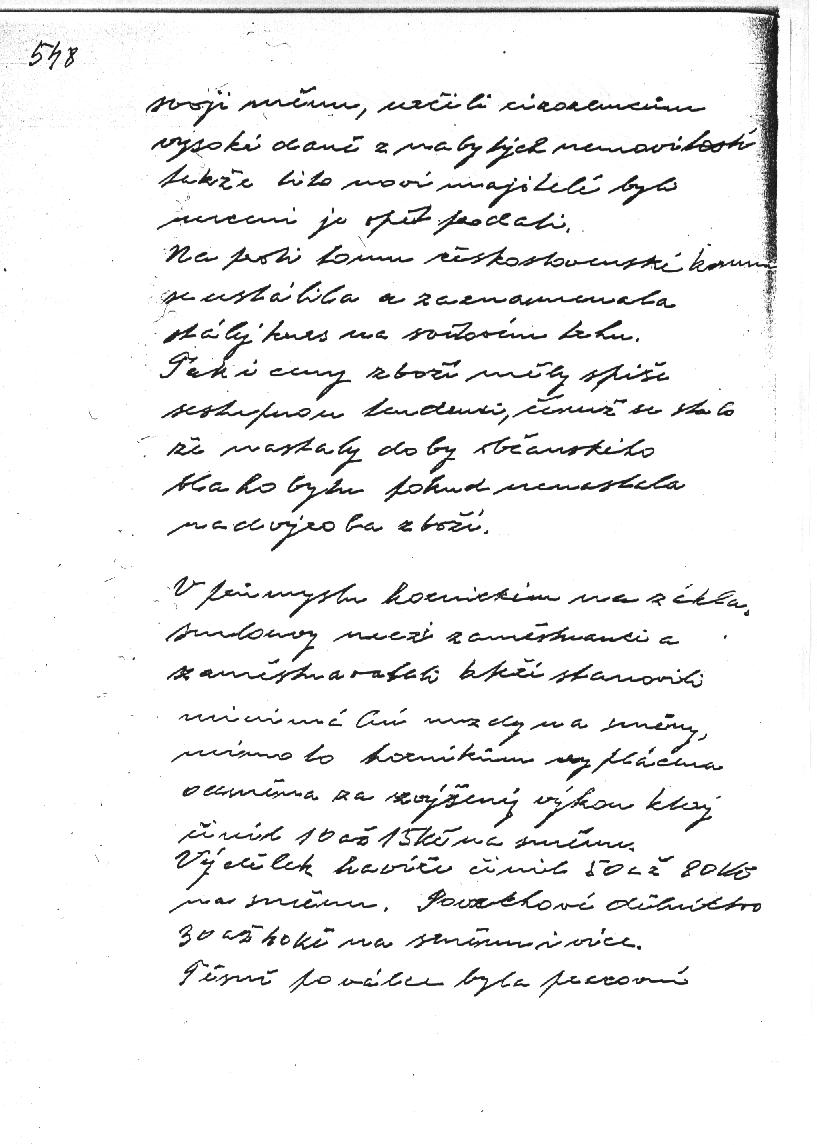 548
svoji měnu, určili cizozemcům
vysoké daně z nabytých nemovitostí
takže tito noví majitelé byli
nuceni je opět prodati.
Na proti tomu československá koruna
se ustálila a zaznamenala
stálý kurs na světovém trhu.
Tak i ceny zboží měly spíše
sestupnou tendenci, čímuž se stalo
že nastaly doby občanského
blahobytu pokud nenastala
nadvýroba zboží.
V průmyslu hornickém na zákla.
smlouvy mezi zaměstnanci a
zaměstnavateli kteří stanovili
minimálni mzdy na směny,
mimoto horníkům vyplácena
odměna za zvýšený výkon který
činil 10 až 15 Kč na směnu.
Výdělek havíře činil 50 až 80 Kč
na směnu. Povrchové dělnictvo
30 až 40 Kč na směnu i více.
Těsně po válce byla pracovní